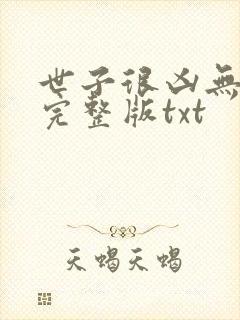 世子很凶無
完整版txt
天蝎天蝎